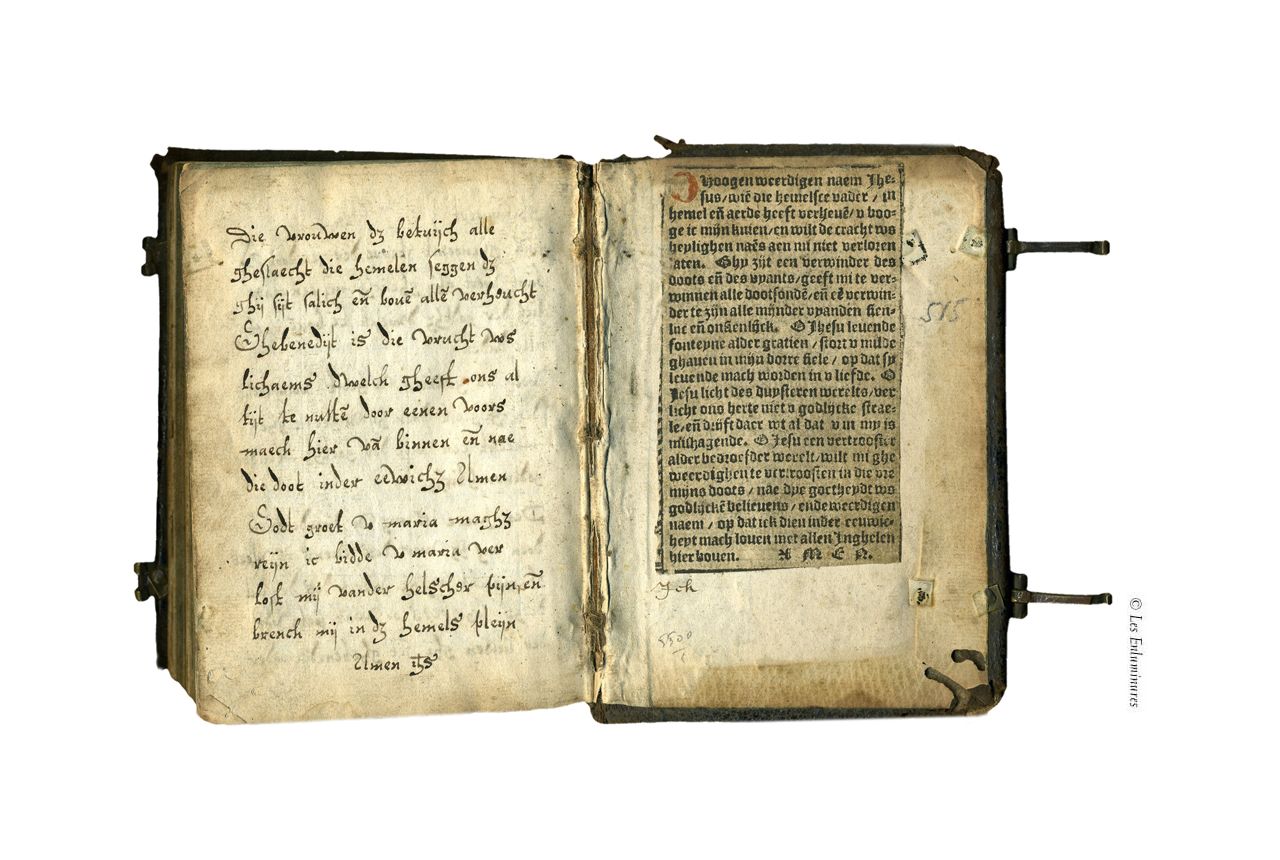 Die vrouwen dʒ betuijch alle
gheslaecht die hemelen seggen dʒ
ghij sijt salich en̄ bouē allē verheucht
Ghebenedijt is die vrucht ws
lichaems dwelch gheeft ons al
tijt te nuttē door eenen voors
maech hier vā binnen en̄ nae
die doot inder eewichʒ Amen
Godt groet v maria maghʒ
reijn ic bidde v maria ver
lost mij vander helscher pijn en̄
brench mij in dʒ hemels pleijn
Amen ihs
O Hoogen weerdigen naem Ihe⸗
sus/wiē die hemelsce vader / in
hemel en̄ aerde heeft verheuē/ v boo⸗
ge ic mijn knien/en wilt de cracht ws
heylighen naēs aen mi niet verloren
laten. Ghy zijt een verwinder des
doots en̄ des vyants/geeft mi te ver⸗
winnen alle dootsondē/en̄ eē verwin⸗
der te zijn alle mijnder vyanden sien⸗
lijc en̄ onsienlijck. O Jhesu leuende
fonteyne alder gratien / stort v milde
ghauen in mijn dorre siele / op dat sy
leuende mach worden in v liefde. O
Jesu licht des duysteren werelts/ver
licht ons herte met v godlijcke strae⸗
le/en̄ drijft daer wt al dat v in my is
mishagende. O Jesu een vertrooster
alder bedroefder werelt/wilt mi ghe
weerdighen te vertroosten in die vre
mijns doots / nae dye gootheydt ws
godlijckē belieuens / ende weerdigen
naem / op dat ick dien inder eeuwic⸗
heyt mach louen met allen Inghelen
hier bouen. A M E N.
Ick
515
5500
© Les Enluminures